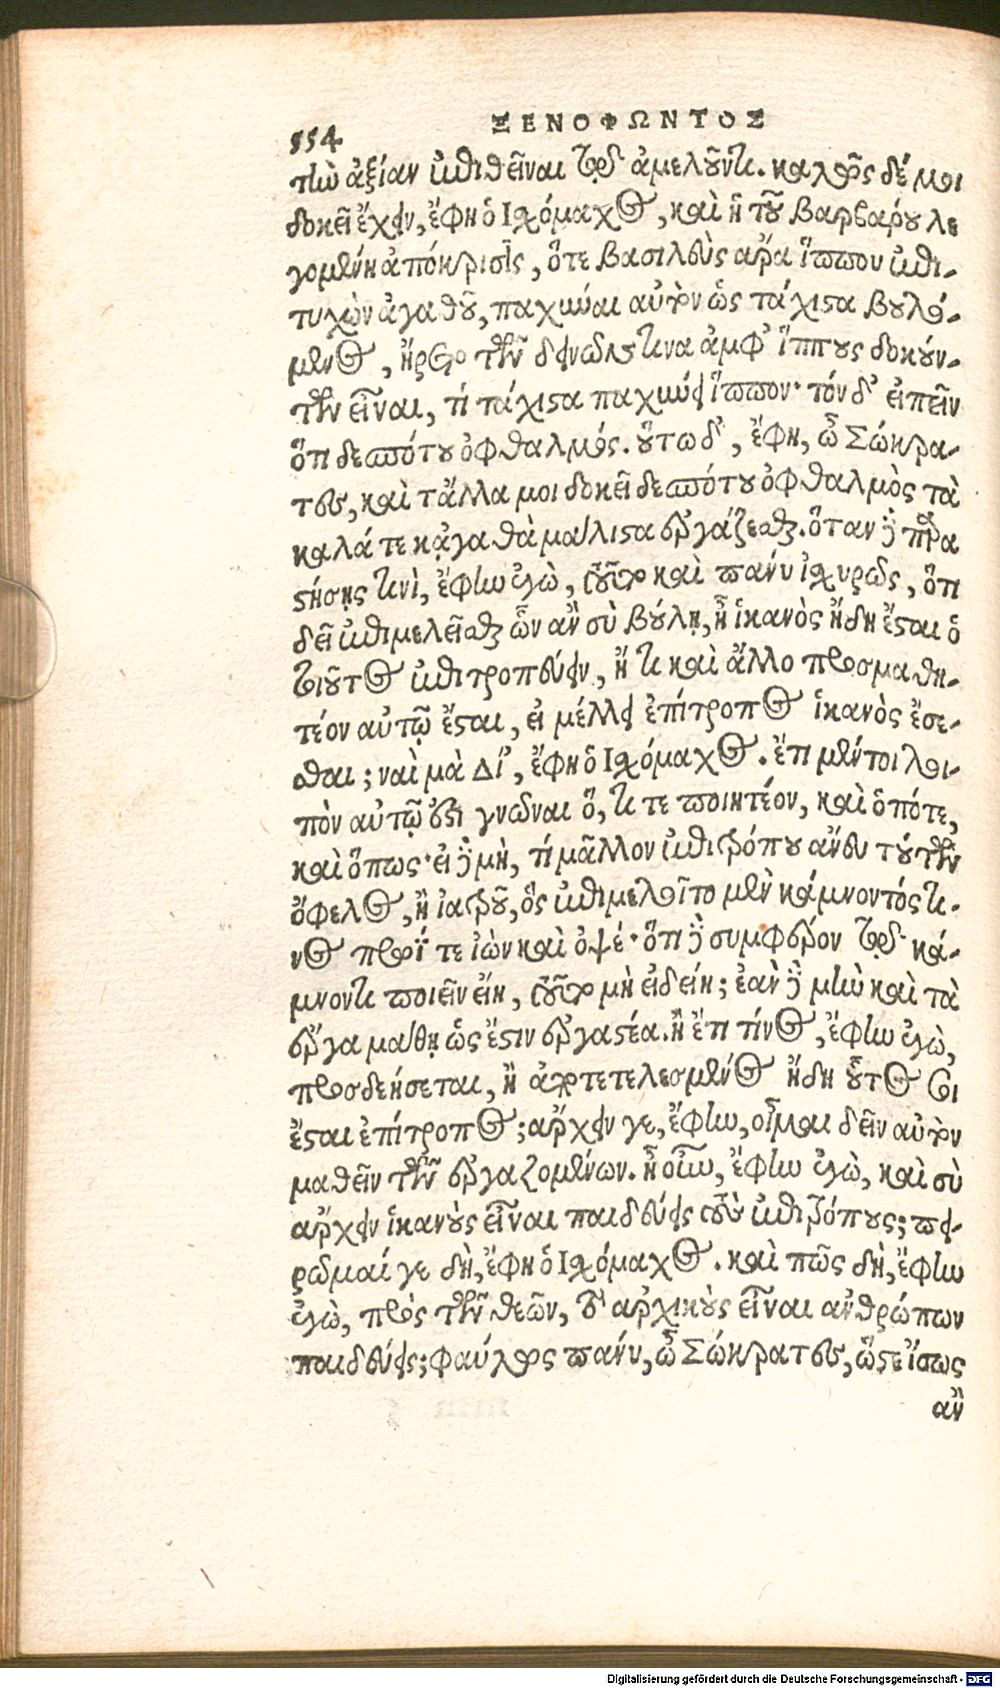 554
ΞΕΝΟΦΩΝΤΟΣ
τὴν ἀξίαν ἐπιθεῖναι τῷ ἀμελοῦντι. καλῶς δέ μοι
δοκεῖ ἔχειν, ἔφη ὁ Ἰσχόμαχος, καὶ ἡ τοῦ βαρβάρου λε
γομένη ἀπόκρισις, ὅτε βασιλεὺς ἄρα ἵππου ἐπι-
τυχὼν ἀγαθοῦ, παχῦναι αὐτὸν ὡς τάχιστα βουλό-
μενος, ἤρετο τῶν δεινῶν τινα ἀμφ' ἵππους δοκούν-
των εἶναι, τί τάχιστα παχύνει ἵππον· τὸν δ' εἰπεῖν
ὅτι δεσπότου ὀφθαλμός. οὕτω δ', ἔφη, ὦ Σώκρα-
τες, καὶ τἄλλα μοι δοκεῖ δεσπότου ὀφθαλμὸς τὰ
καλά τε κἀγαθὰ μάλιστα ἐργάζεσθαι. ὅταν δὲ παρα
στήσῃς τινὶ, ἔφην ἐγὼ, τοῦτο καὶ πάνυ ἰσχυρῶς, ὅτι
δεῖ ἐπιμελεῖσθαι ὧν ἂν σὺ βούλῃ, ἦ ἱκανὸς ἤδη ἔσται ὁ
τοιοῦτος ἐπιτροπεύειν, ἤ τι καὶ ἄλλο προσμαθη-
τέον αὐτῷ ἔσται, εἰ μέλλει ἐπίτροπος ἱκανὸς ἔσε-
σθαι; ναὶ μὰ Δί', ἔφη ὁ Ἰσχόμαχος. ἔτι μέντοι λοι-
πὸν αὐτῷ ἐστι γνῶναι ὅ, τι τε ποιητέον, καὶ ὁπότε,
καὶ ὅπως· εἰ δὲ μὴ, τί μᾶλλον ἐπιτρόπου ἄνευ τούτων
ὄφελος, ἢ ἰατροῦ, ὃς ἐπιμελοῖτο μὲν κάμνοντός τι-
νος πρωΐ τε ἰὼν καὶ ὀψέ· ὅτι δὲ συμφέρον τῷ κά-
μνοντι ποιεῖν εἴη, τοῦτο μὴ εἰδείη; ἐὰν δὲ μὴν καὶ τὰ
ἔργα μάθῃ ὡς ἔστιν ἐργαστέα. ἢ ἔτι τίνος, ἔφην ἐγὼ,
προσδεήσεται, ἢ ἀποτετελεσμένος ἤδη οὗτός σοι
ἔσται ἐπίτροπος; ἄρχειν γε, ἔφην, οἶμαι δεῖν αὐτὸν
μαθεῖν τῶν ἐργαζομένων. ἦ οὖν, ἔφην ἐγὼ, καὶ σὺ
ἄρχειν ἱκανοὺς εἶναι παιδεύεις τοὺς ἐπιτρόπους; πει-
ρῶμαί γε δὴ, ἔφη ὁ Ἰσχόμαχος. καὶ πῶς δὴ, ἔφην
ἐγὼ, πρὸς τῶν θεῶν, τὸ ἀρχικοὺς εἶναι ἀνθρώπων
παιδεύεις; φαύλως πάνυ, ὦ Σώκρατες, ὥστε ἴσως
ἂν
Digitalisierung gefördert durch die Deutsche Forschungsgemeinschaft - DFG